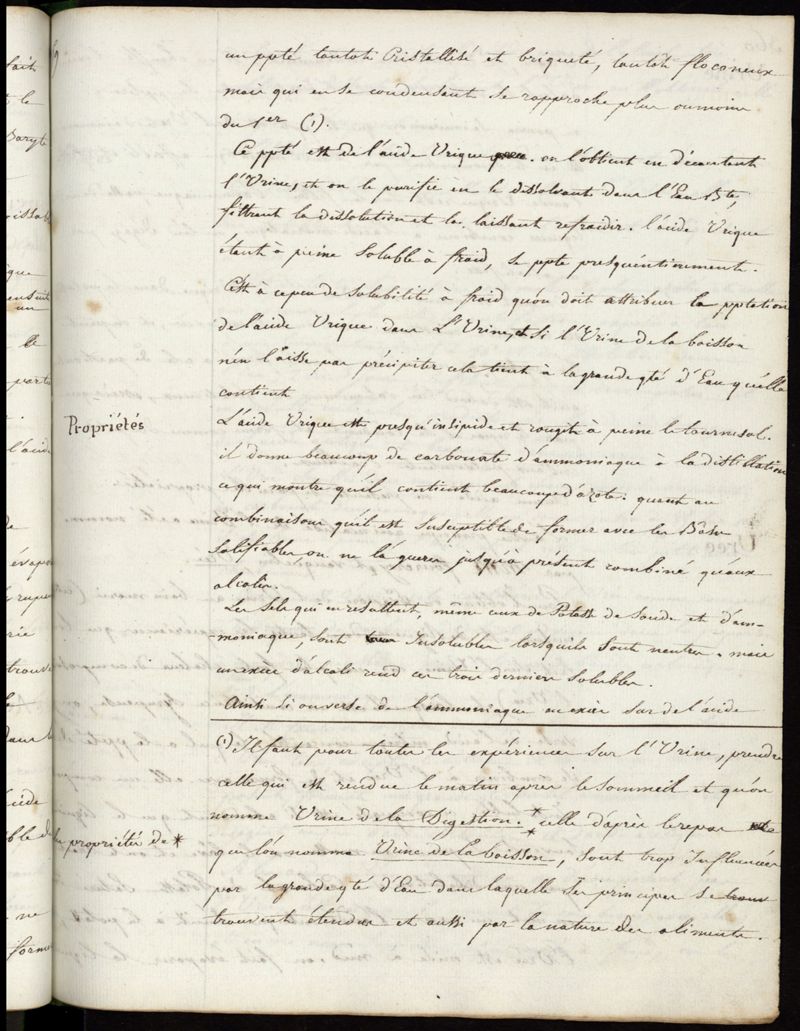 un ppté tantôt Cristallisé et briqueté, tantôt floconeux
mais qui en se condensant se rapproche plus ou moins
du 1er (1).
Ce ppté est de l'acide Urique on l'obtient en décantant
l'Urine, et on le purifie en le dissolvant dans l'Eau Bte,
filtrant la dissolution et la laissant refroidir. l'acide Urique
étant à peine soluble à froid, se ppte presqu'entièrement.
C'est à ce peu de solubilité à froid qu'on doit attribuer la pptation
de l'acide Urique dans L'Urine, et si l'Urine de la boisson
n'en laisse pas précipiter cela tient à la grande qté d'Eau qu'elle
contient
Propriétés
L'acide Urique est presqu'insipide et rougit à peine le tournesol.
il donne beaucoup de carbonate d'ammoniaque à la distillation
ce qui montre qu'il contient beaucoup d'azote: quant au
combinaisons qu'il est susceptible de former avec les Bases
salifiables on ne l'a guères jusqu'à présent combiné qu'aux
alcalis.
Les sels qui en resultent, même ceux de Potasse de Soude et d'am-
-moniaque, sont Insolubles lorsquils sont neutres. mais
un excès d'alcali rend ces trois derniers solubles.
Ainsi si on verse de l'ammoniaque en excès sur de l'acide
(1) Il faut pour toutes les expériences sur l'Urine, prendre
celle qui est rendue le matin après le Sommeil et qu'on
nomme Urine de la Digestion. * celle d'après le repas
les propriétés de *
que l'on nomme Urine de la boisson, sont trop Influencées
par la grande qté d'Eau dans laquelle ses principes se
trouvent étendus et aussi par la nature des aliments.